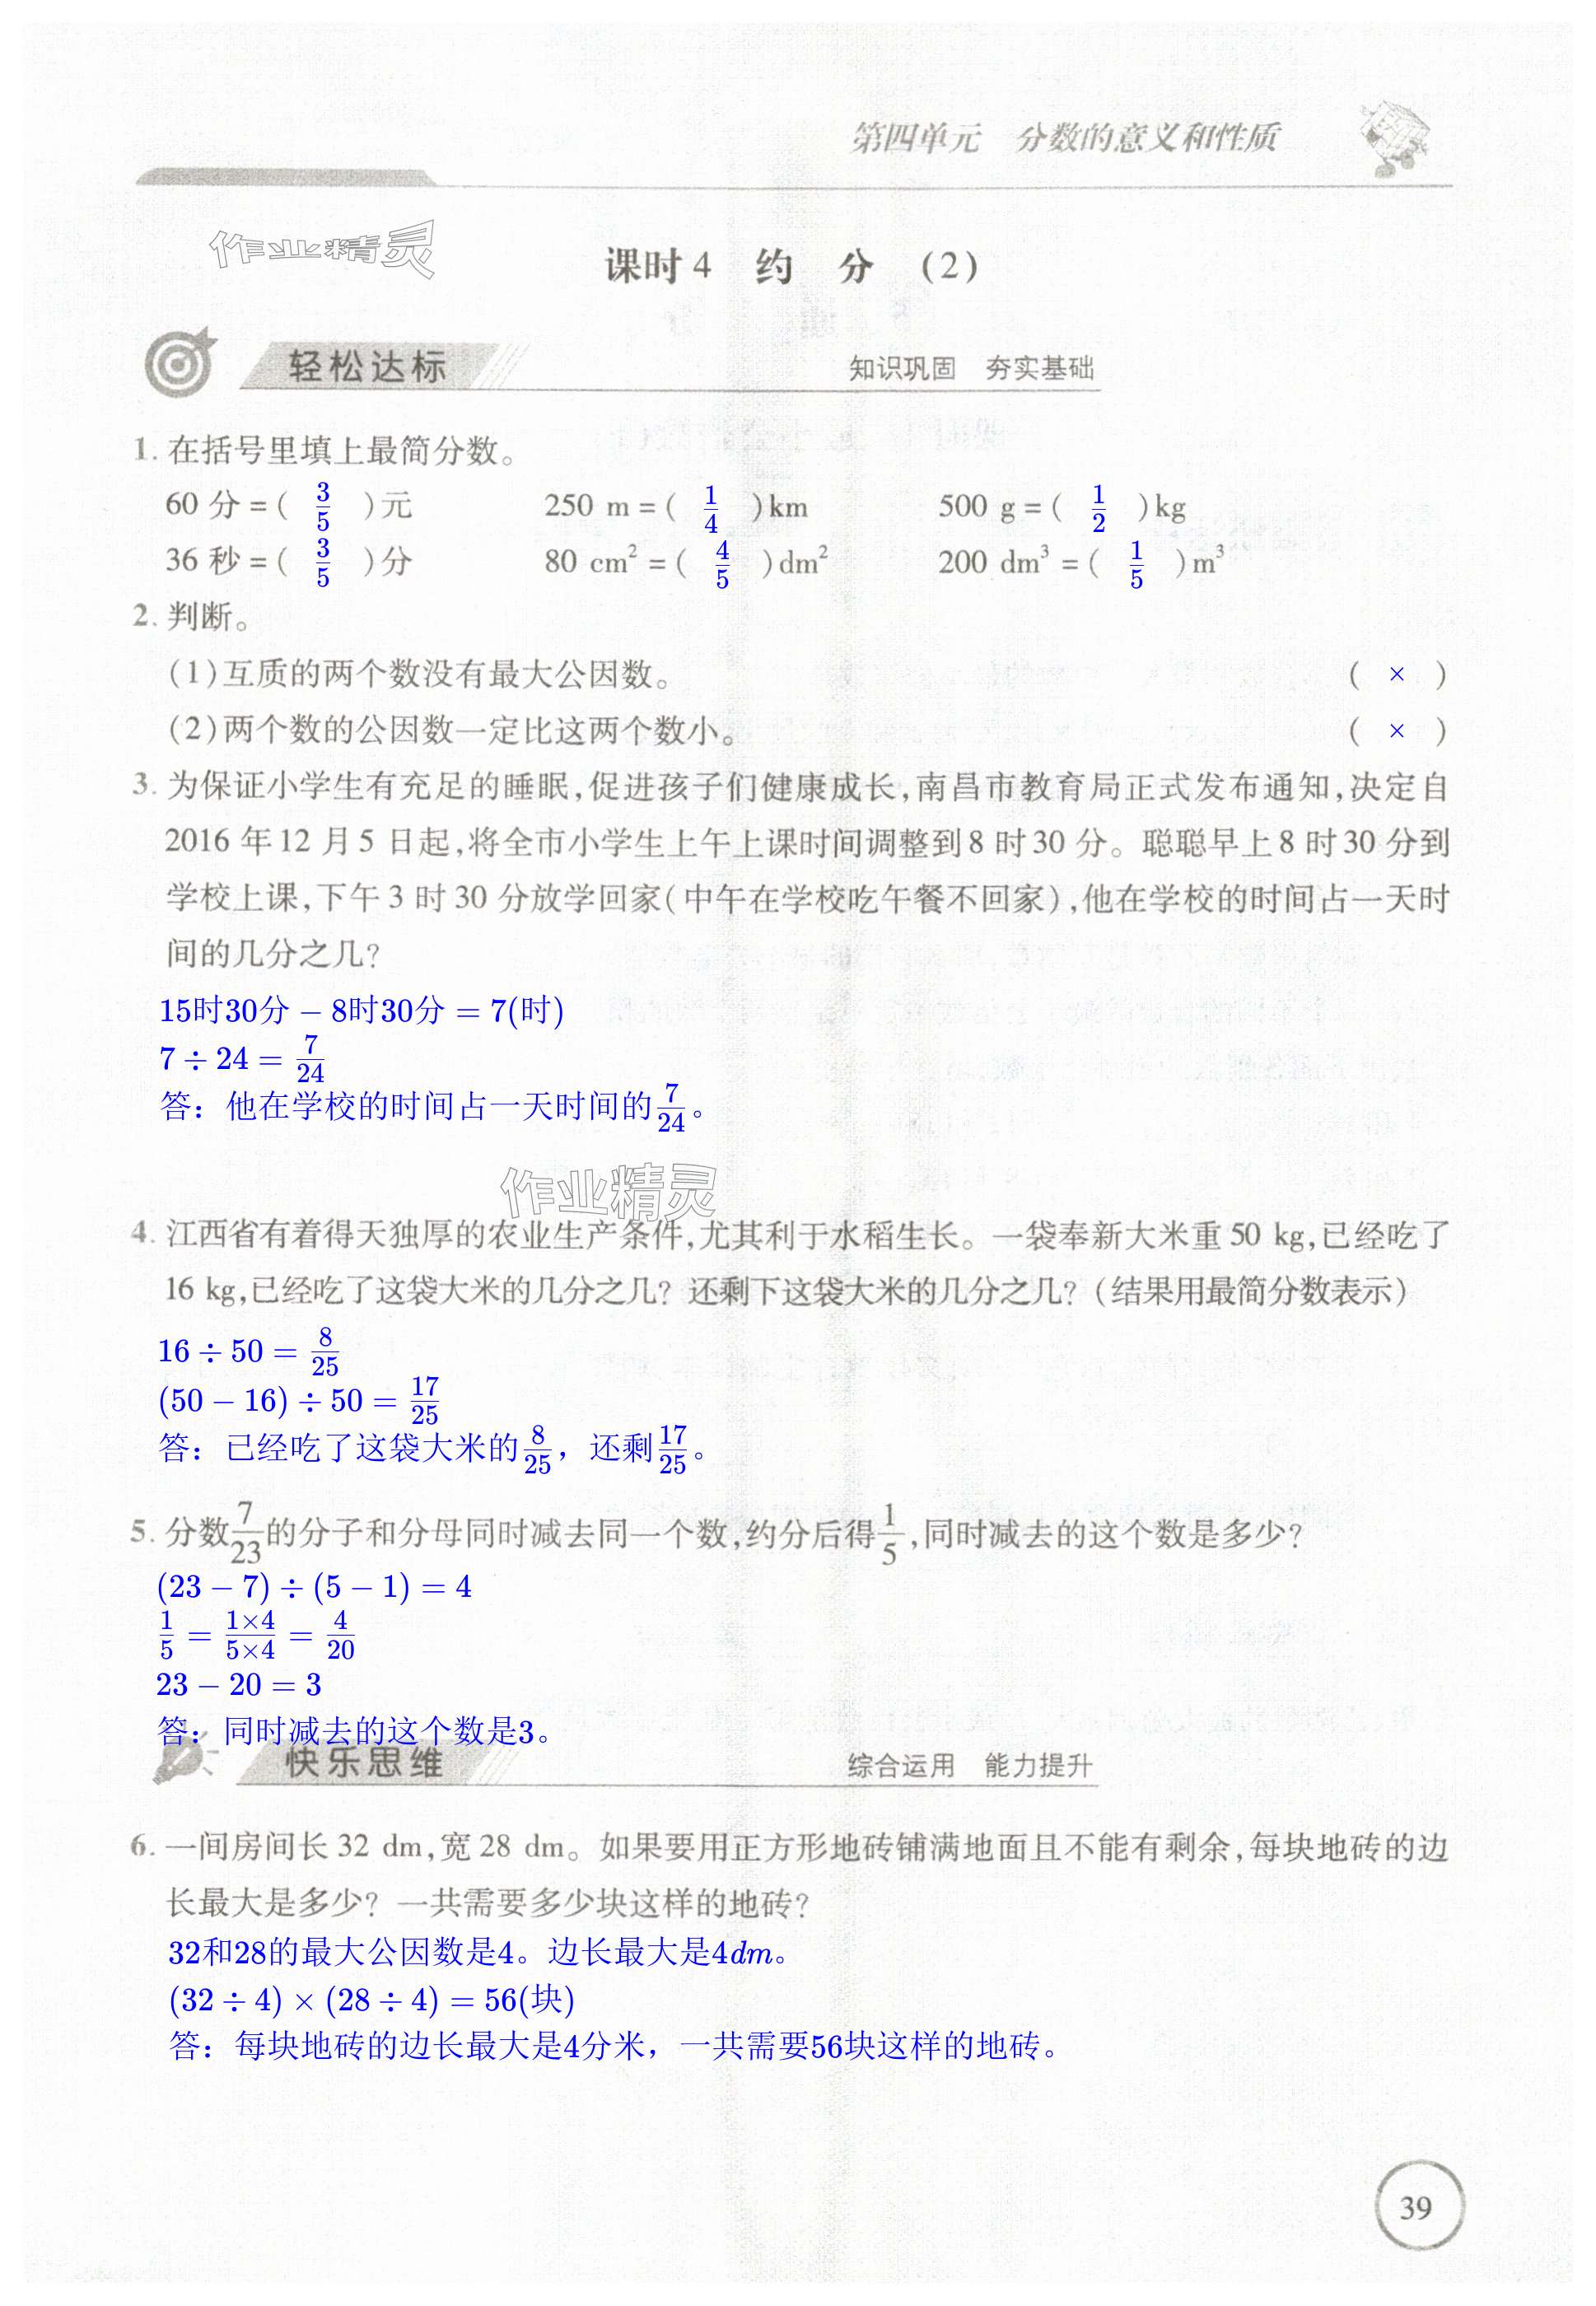 第四单元 分数的意义和性质
作业精灵
课时4 约 分 (2)
轻松达标 知识巩固 夯实基础
1. 在括号里填上最简分数。
60 分 = ( 3/5 )元 250 m = ( 1/4 )km 500 g = ( 1/2 )kg
36 秒 = ( 3/5 )分 80 cm² = ( 4/5 )dm² 200 dm³ = ( 1/5 )m³
2. 判断。
(1)互质的两个数没有最大公因数。 ( × )
(2)两个数的公因数一定比这两个数小。 ( × )
3. 为保证小学生有充足的睡眠,促进孩子们健康成长,南昌市教育局正式发布通知,决定自
2016 年12 月5 日起,将全市小学生上午上课时间调整到8 时30 分。聪聪早上8 时30 分到
学校上课,下午3 时30 分放学回家(中午在学校吃午餐不回家),他在学校的时间占一天时
间的几分之几?
15时30分 − 8时30分 = 7(时)
7 ÷ 24 = 7/24
答：他在学校的时间占一天时间的7/24。
作业精灵
4. 江西省有着得天独厚的农业生产条件,尤其利于水稻生长。一袋奉新大米重50 kg,已经吃了
16 kg,已经吃了这袋大米的几分之几? 还剩下这袋大米的几分之几? (结果用最简分数表示)
16 ÷ 50 = 8/25
(50 − 16) ÷ 50 = 17/25
答：已经吃了这袋大米的8/25，还剩17/25。
5. 分数7/23的分子和分母同时减去同一个数,约分后得1/5,同时减去的这个数是多少?
(23 − 7) ÷ (5 − 1) = 4
1/5 = 1×4/5×4 = 4/20
23 − 20 = 3
答：同时减去的这个数是3。
快乐思维 综合运用 能力提升
6. 一间房间长32 dm,宽28 dm。如果要用正方形地砖铺满地面且不能有剩余,每块地砖的边
长最大是多少? 一共需要多少块这样的地砖?
32和28的最大公因数是4。边长最大是4dm。
(32 ÷ 4) × (28 ÷ 4) = 56(块)
答：每块地砖的边长最大是4分米，一共需要56块这样的地砖。
39